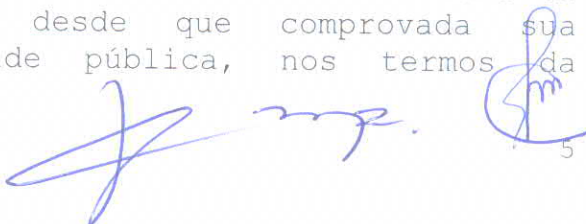 desde que comprovada sua
de pública, nos termos da
5